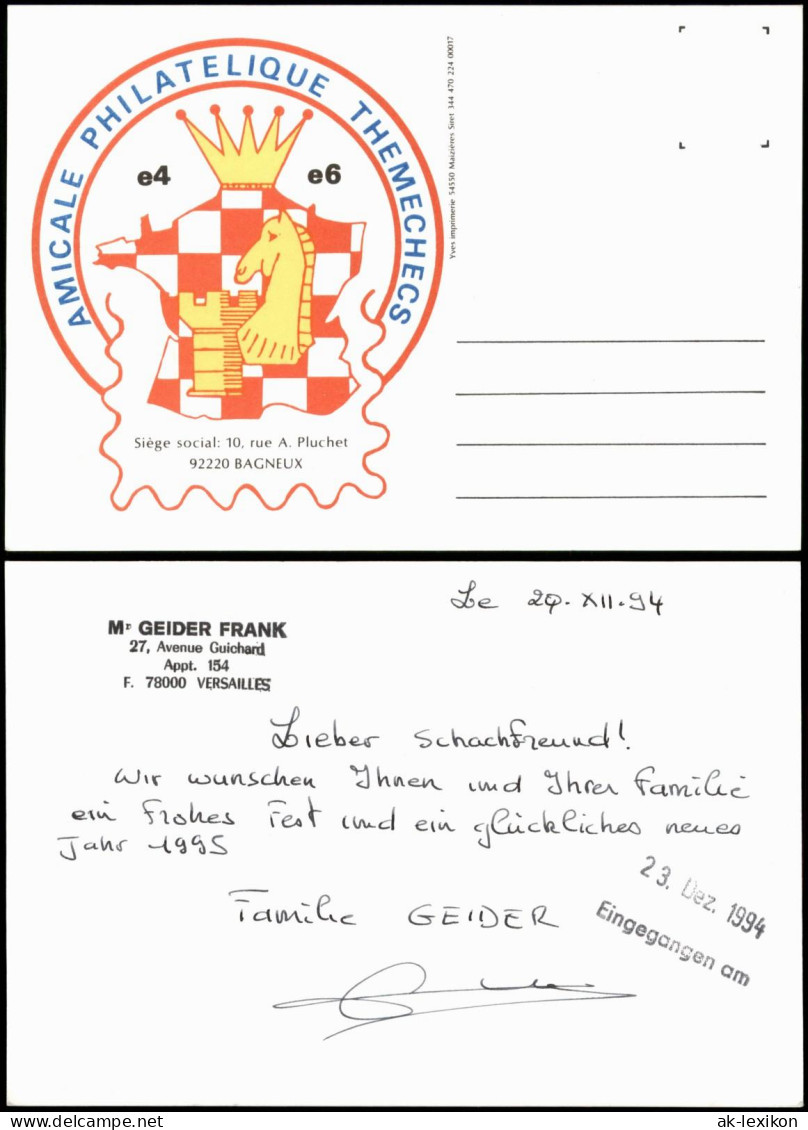 AMICALE PHILATELIQUE THEMECHECS
e4 e6
Siège social: 10, rue A. Pluchet
92220 BAGNEUX
Yves imprimerie 54550 Maizières Siret 344 470 224 00017
Le 20.XII.94
Mr GEIDER FRANK
27, Avenue Guichard
Appt. 154
F. 78000 VERSAILLES
Lieber Schachfreund!
Wir wunschen Ihnen und Ihrer Familie
ein Frohes Fest und ein glückliches neues
Jahr 1995
Familie GEIDER
23. Dez. 1994
Eingegangen am
www.ansichtskarten-lexikon.de
ak-lexikon.com